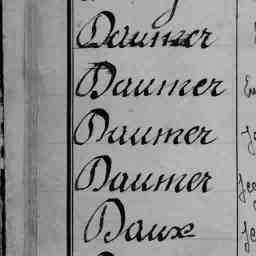 Daumer
Daumer
Daumer
Daumer
Daux